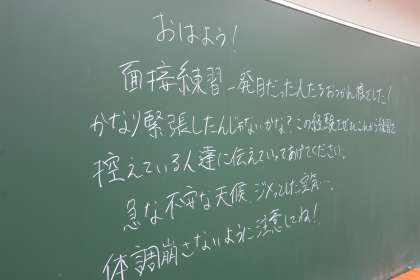 おはよう!
面接練習一発目だった人たちおつかれ様でした!
かなり緊張したんじゃないかな?この経験をぜひこれから練習を
控えている人達に伝えていってあげてください。
急な不安な天候、ジメっとした空気…。
体調崩さないように注意してね!